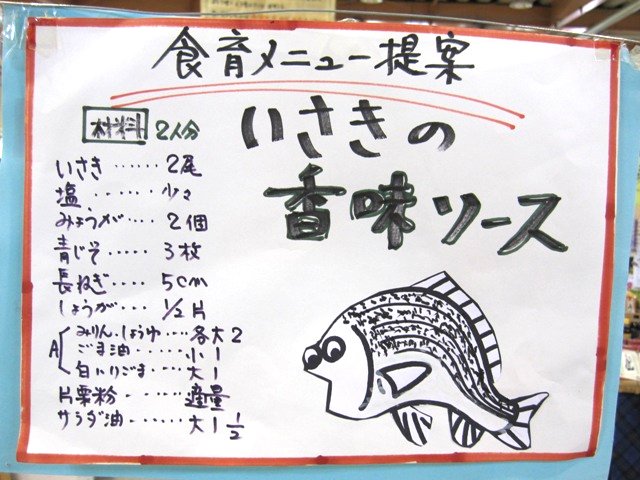 食育メニュー提案
いさきの
香味ソース
材料 2人分
いさき……2尾
塩……少々
みょうが…2個
青じそ……3枚
長ねぎ……5cm
しょうが…1/2片
A
みりん、しょうゆ…各大2
ごま油……小1
白いりごま…大1
片栗粉……適量
サラダ油……大1 1/2